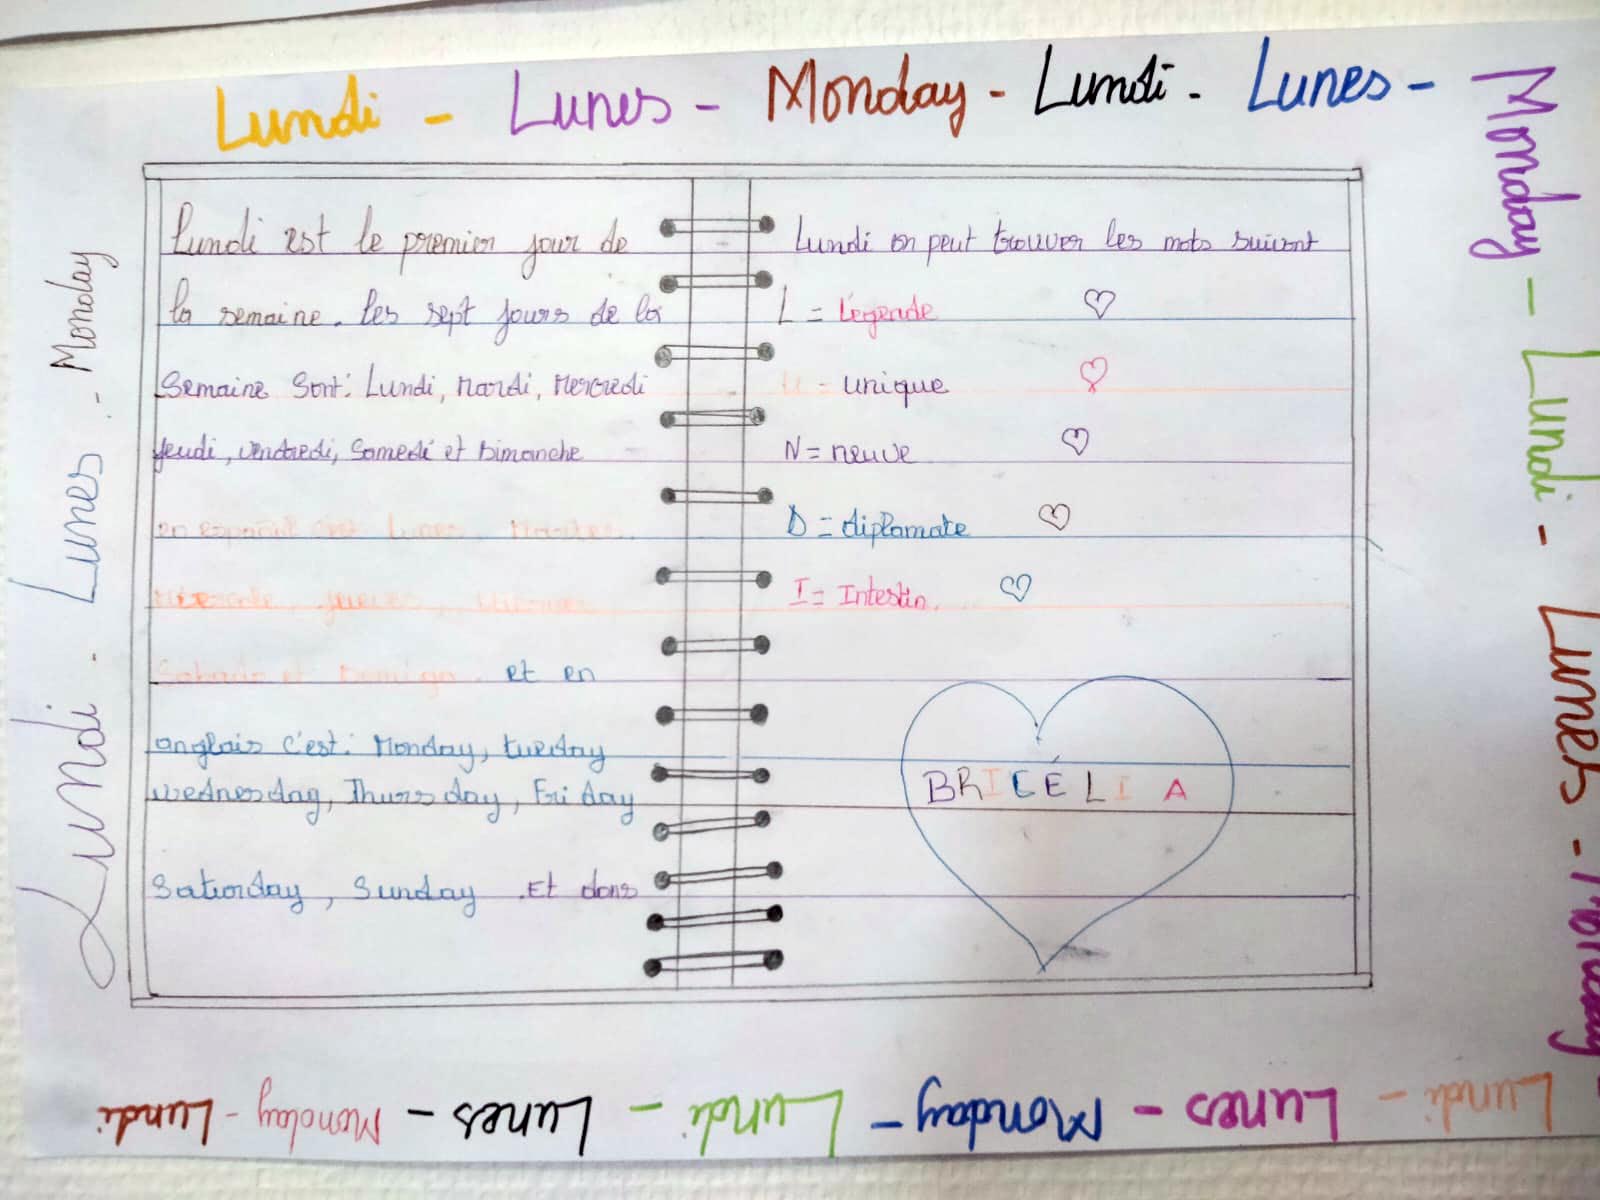 Lundi - Lunes - Monday - Lundi - Lunes -
Monday - Lundi - Lunes - Monday -
Lundi - Lunes - Monday - Lundi - Lunes - Monday - Lundi
Lundi - Lunes - Monday
Lundi est le premier jour de
la semaine. les sept jours de la
Semaine Sont: Lundi, Mardi, Mercredi
jeudi, vendredi, Samedi et Dimanche
en español Lunes,
jueves,
et en
anglais c'est: Monday, tuesday
wednesday, Thursday, Friday
Saturday, Sunday .Et dans
Lundi on peut trouver les mots suivant
L = Légende
U = unique
N = neuve
D = diplomate
I = Intestin.
BRICÉLIA